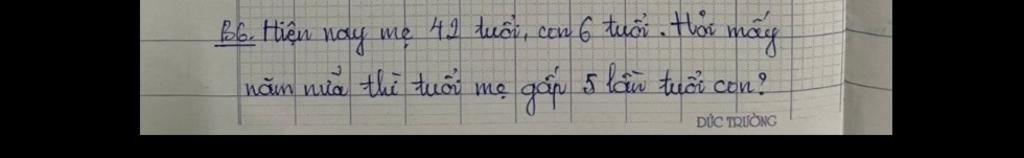 B6. Hiện nay mẹ 42 tuổi, con 6 tuổi. Hỏi mấy
năm nữa thì tuổi mẹ gấp 5 lần tuổi con?
ĐỨC TRƯỜNG